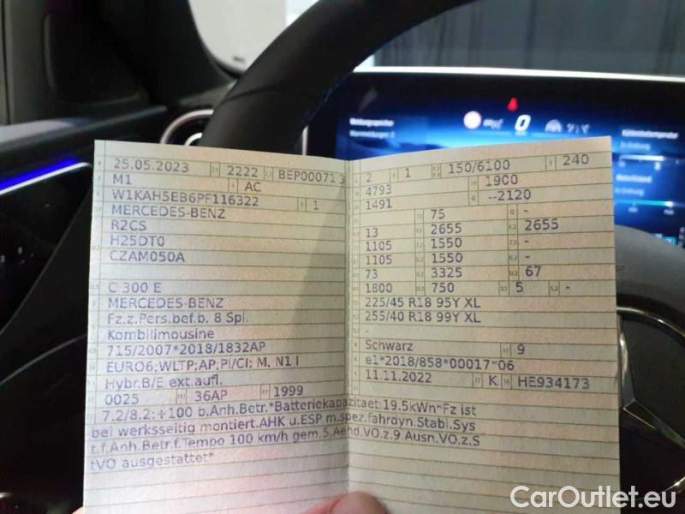 25.05.2023 2222 BEP00071 3
M1 AC
W1KAH5EB6PF116322 1
MERCEDES-BENZ
R2CS
H25DT0
CZAM050A
C 300 E
MERCEDES-BENZ
Fz.z.Pers.bef.b. 8 Spl.
Kombilimousine
715/2007*2018/1832AP
EURO6;WLTP;AP;PI/CI; M, N1 I
Hybr.B/E ext.aufl.
0025 36AP 1999
7.2/8.2:+100 b.Anh.Betr.*Batteriekapazitaet:19.5kWh*Fz ist
bei werksseitig montiert.AHK u.ESP m.spez.fahrdyn.Stabi.Sys
t.f.Anh.Betr.f.Tempo 100 km/h gem.5.Aend.VO.z.9 Ausn.VO.z.S
tVO ausgestattet*
2 1 150/6100 240
4793 1900
1491 --2120
75 -
13 2655 2655
1105 1550 -
1105 1550 -
73 3325 67
1800 750 5 -
225/45 R18 95Y XL
255/40 R18 99Y XL
-
Schwarz 9
e1*2018/858*00017*06
11.11.2022 K HE934173
0
CarOutlet.eu